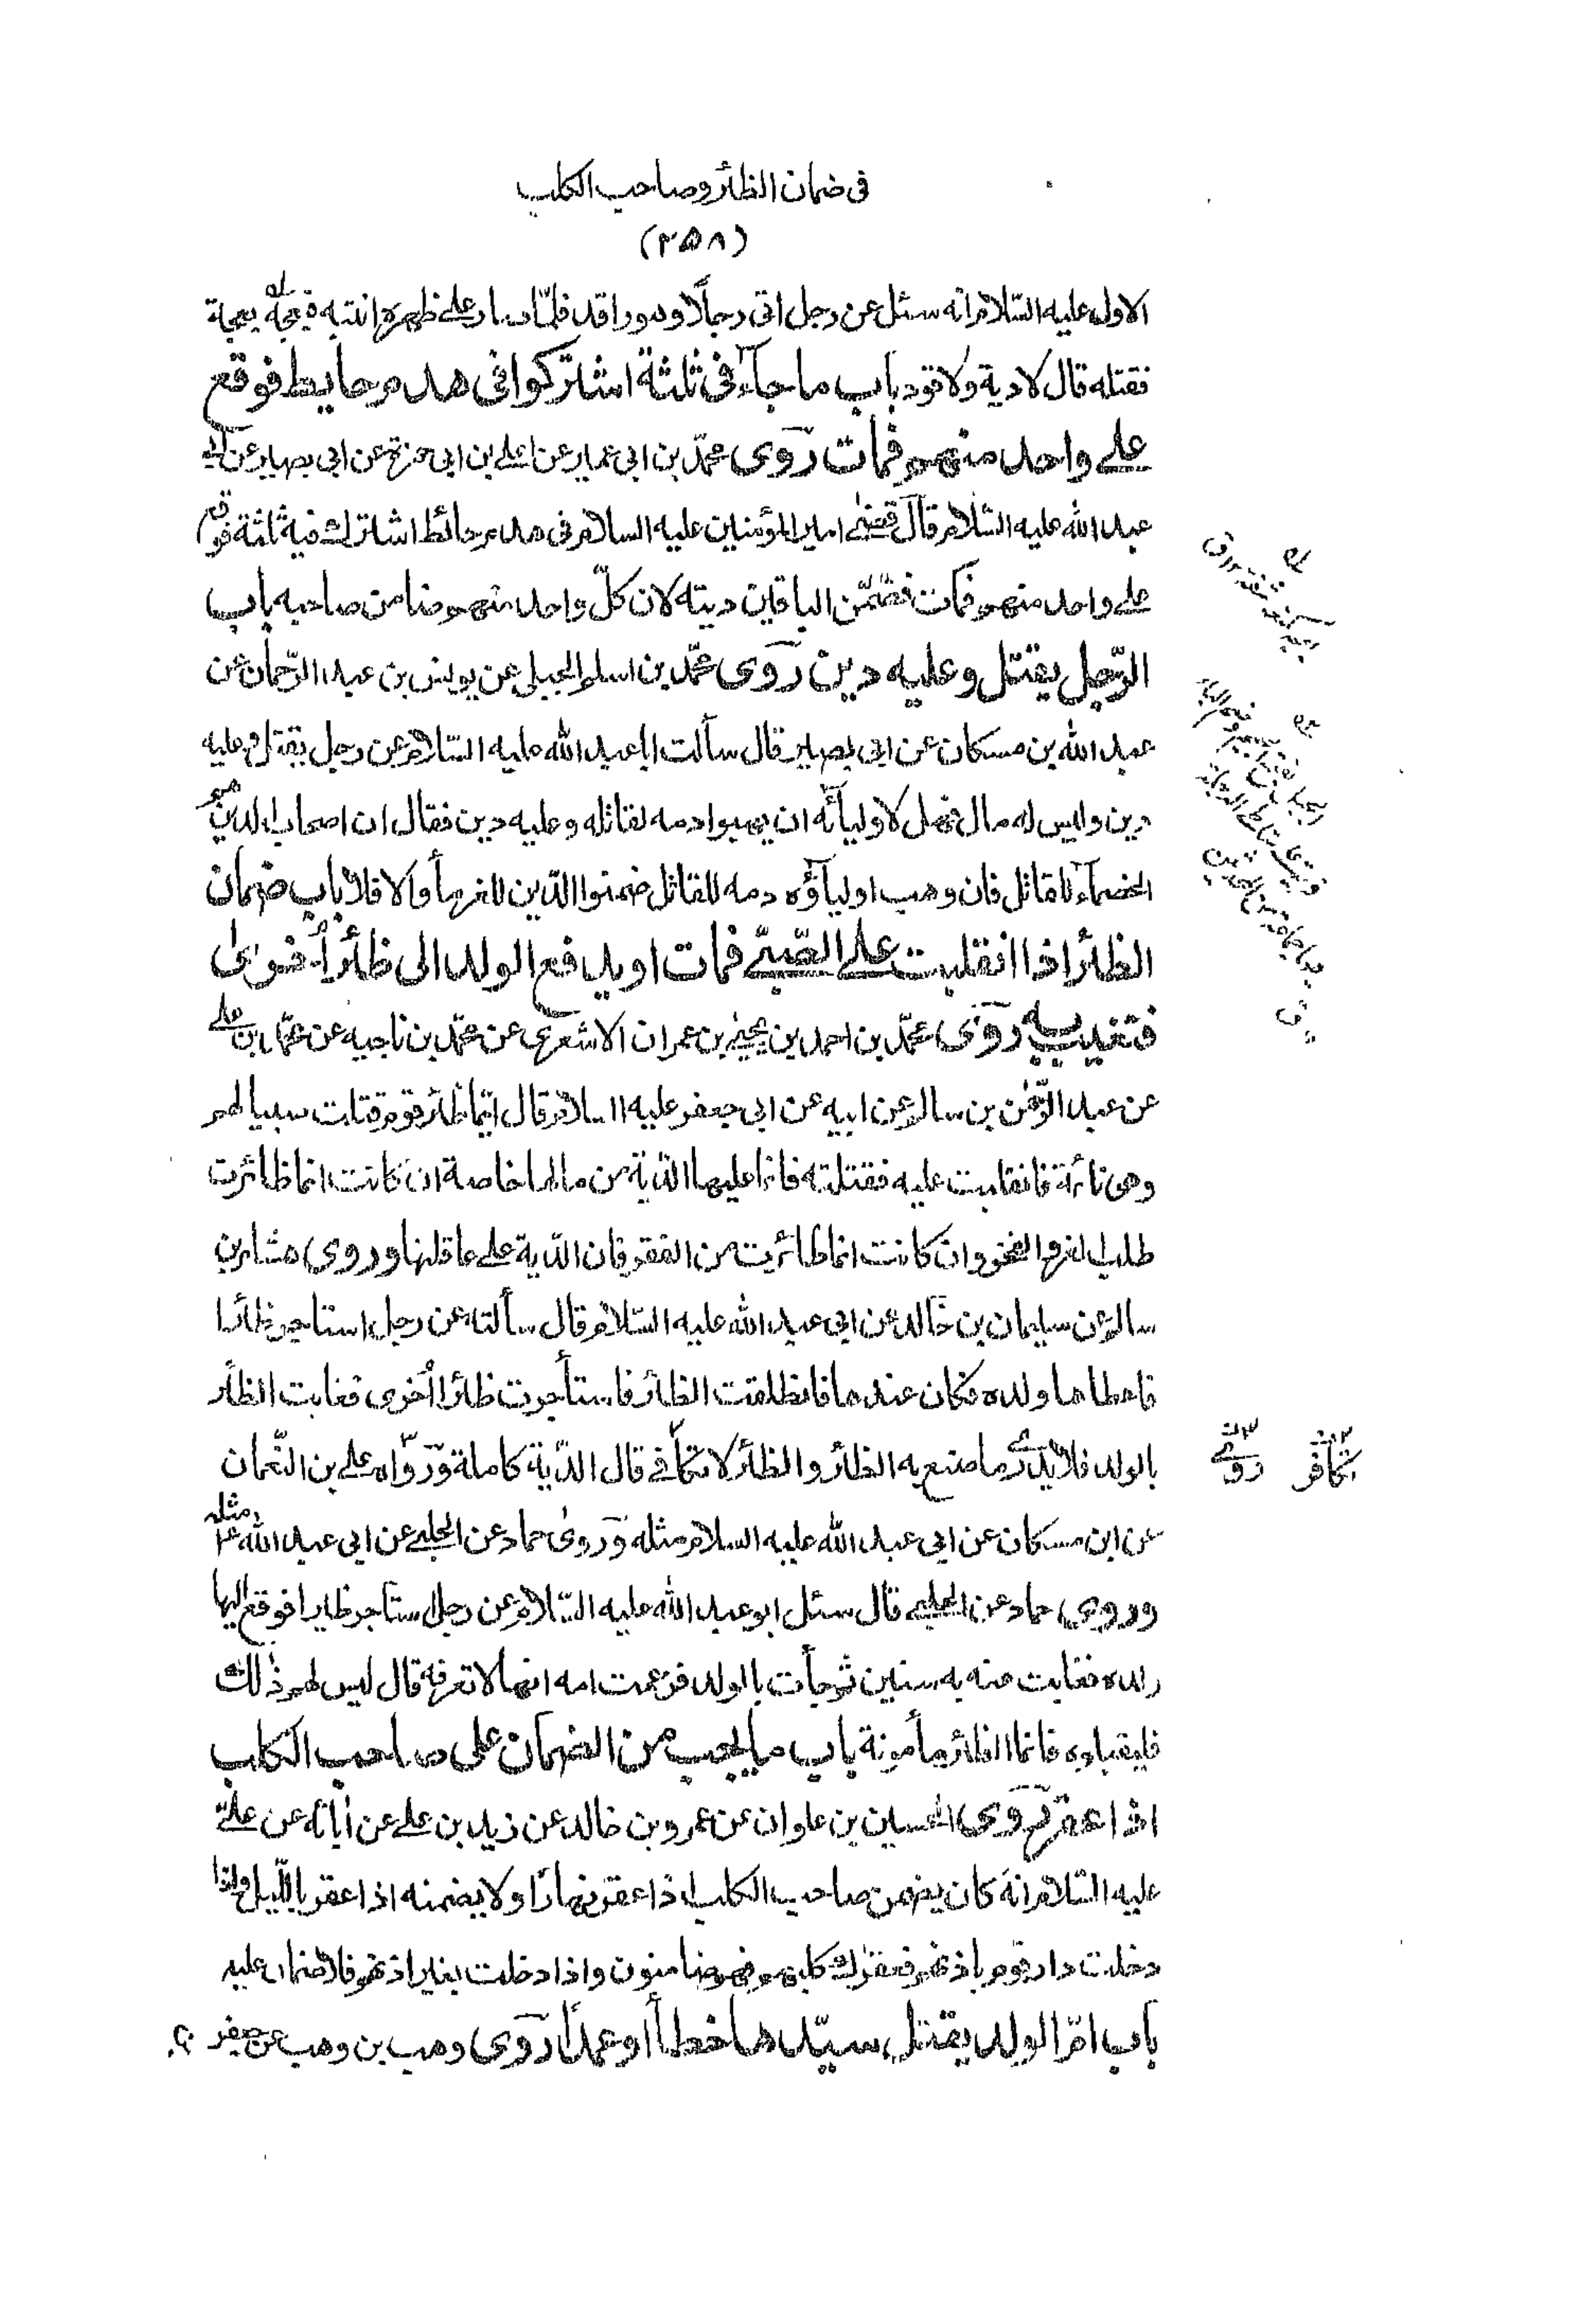 فى ضمان الظائر وصاحب الكلب
(۲۵۸)
الاول عليه السّلام انه سئل عن رجل اتى رجلًا وهو راقد فلمّا صار على ظهره انتبه فبعجه بعجة
فقتله قال لا دية ولا قود باب ما جآء فى ثلثة اشتركوا فى هدم حايط فوقع
على واحد منهم فمات روى محمّد بن ابى عمير عن على بن ابى حمزة عن ابى بصير عن ابى
عبد الله عليه السّلام قال قضىٰ امير المؤمنين عليه السلام فى هدم حائط اشترك فيه ثلثة فوقع
على واحد منهم فمات فضمّن الباقين ديته لان كلّ واحد منهم ضامن صاحبه باب
الرّجل يقتل وعليه دين روى محمّد بن اسلم الجبلى عن يونس بن عبد الرّحمان عن
عبد الله بن مسكان عن ابى بصير قال سألت ابا عبد الله عليه السّلام عن رجل يقتل وعليه
دين وليس له مال فهل لاوليآئه ان يهبوا دمه لقاتله وعليه دين فقال ان اصحاب الدين هم
الخصمآء للقاتل فان وهب اوليآؤه دمه للقاتل ضمنوا الدّين للغرمآء والا فلا باب ضمان
الظائر اذا انقلبت على الصّبىّ فمات او يدفع الولد الى ظائر اُخرىٰ
فتغيب به روى محمّد بن احمد بن يحيىٰ بن عمران الاشعرى عن محمّد بن ناجيه عن محمّد بن على
عن عبد الرّحمٰن بن سالم عن ابيه عن ابى جعفر عليه السلام قال ايّما ظائر قوم قتلت صبيا لهم
وهى نائمة فانقلبت عليه فقتلته فانما عليها الدّية من مالها خاصة ان كانت انما ظائرت
طلب العز والفخر وان كانت انما ظائرت من الفقر فان الدّية على عاقلتها وروى هشام بن
سالم عن سليمان بن خالد عن ابى عبد الله عليه السّلام قال سألته عن رجل استاجر ظائرا
فاعطاها ولده فكان عندها فانطلقت الظائر فاستأجرت ظائرا اُخرى فغابت الظائر
بالولد فلا يدرى ما صنع به الظائر والظائر لا تكافى قال الدّية كاملة ورواه على بن النّعمان
عن ابن مسكان عن ابى عبد الله عليه السلام مثله وروىٰ حماد عن الحلبى عن ابى عبد الله ع مثله
وروى حماد عن الحلبى قال سئل ابو عبد الله عليه السّلام عن رجل استأجر ظايرا فوقع اليها
ولده فغابت عنه به سنين ثم جأت بالولد فزعمت امه انها لا تعرفه قال ليس لهم ذٰلك
فليقبلوه فانما الظائر مأمونة باب ما يجب من الضمان على صاحب الكلب
اذا عقر روى الحسين بن علوان عن عمرو بن خالد عن زيد بن على عن اٰبائه عن علىّ
عليه السّلام انه كان يضمن صاحب الكلب اذا عقر نهارًا ولا يضمنه اذا عقر بالليل واذا
دخلت دار قوم باذنهم فعقرك كلبهم فهم ضامنون واذا دخلت بغير اذنهم فلا ضمان عليه
باب امّ الولد يقتل سيّدها خطأ او عمدًا روى وهب بن وهب عن جعفر